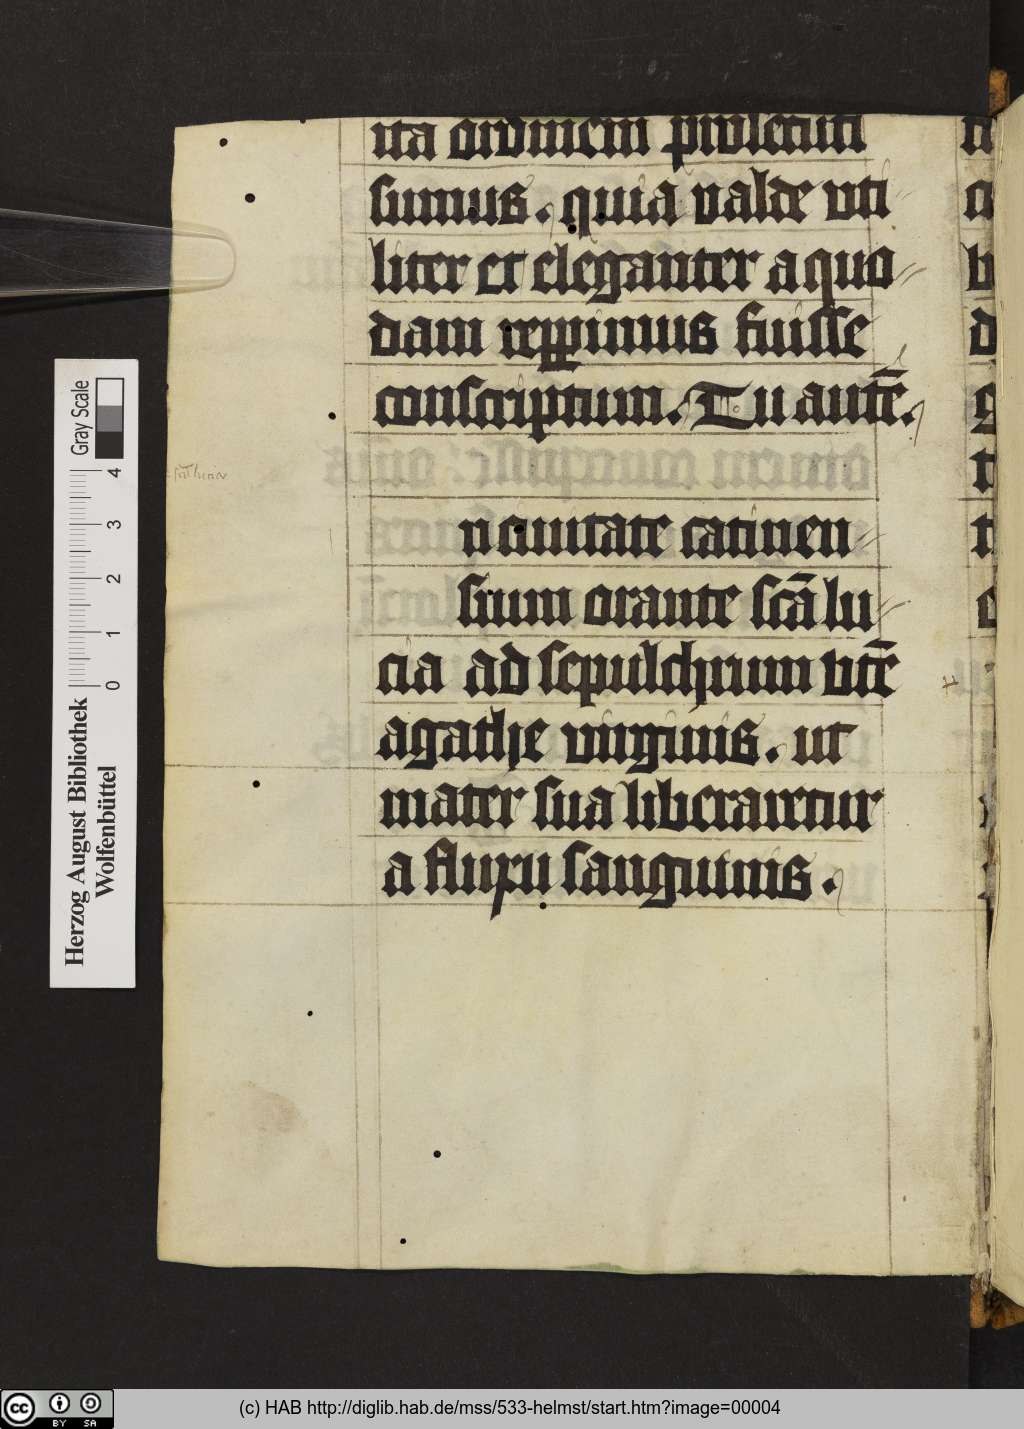 ita ordinem prosecuti
sumus. quia valde uti
liter et eleganter a quo
dam repperimus fuisse
conscriptum. Tu autē.
n ciuitate catinen
sium orante scā lu
cia ad sepulchrum btē
agathe virginis. ut
mater sua liberaretur
a fluxu sanguinis.
Gray Scale
4
3
2
1
0
Herzog August Bibliothek
Wolfenbüttel
cc BY SA
(c) HAB http://diglib.hab.de/mss/533-helmst/start.htm?image=00004